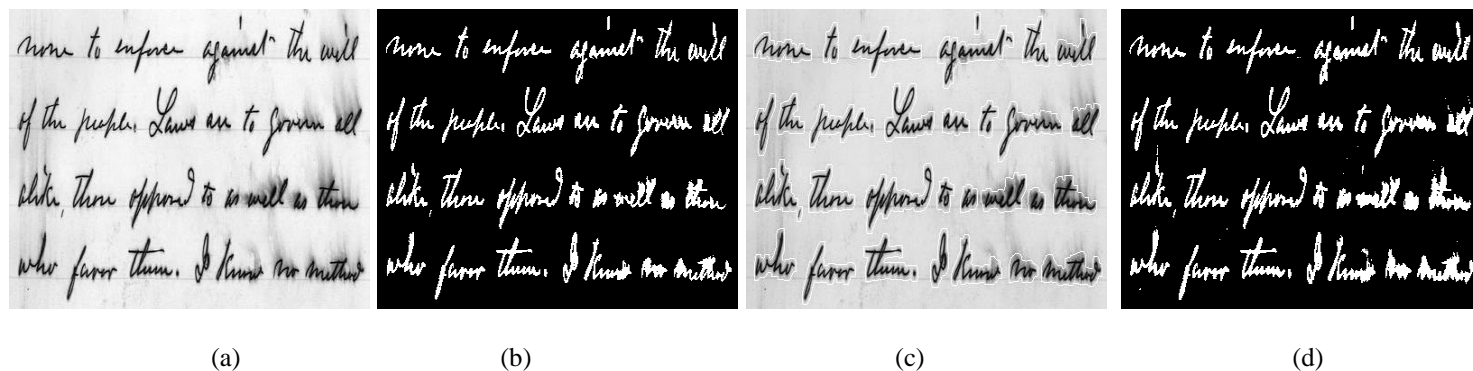 none to enforce against the will
of the people. Laws are to govern all
alike, those opposed to as well as those
who favor them. I know no method
none to enforce against the will
of the people. Laws are to govern all
alike, those opposed to as well as those
who favor them. I know no method
none to enforce against the will
of the people. Laws are to govern all
alike, those opposed to as well as those
who favor them. I know no method
none to enforce against the will
of the people. Laws are to govern all
alike, those opposed to as well as those
who favor them. I know no method
(a) (b) (c) (d)